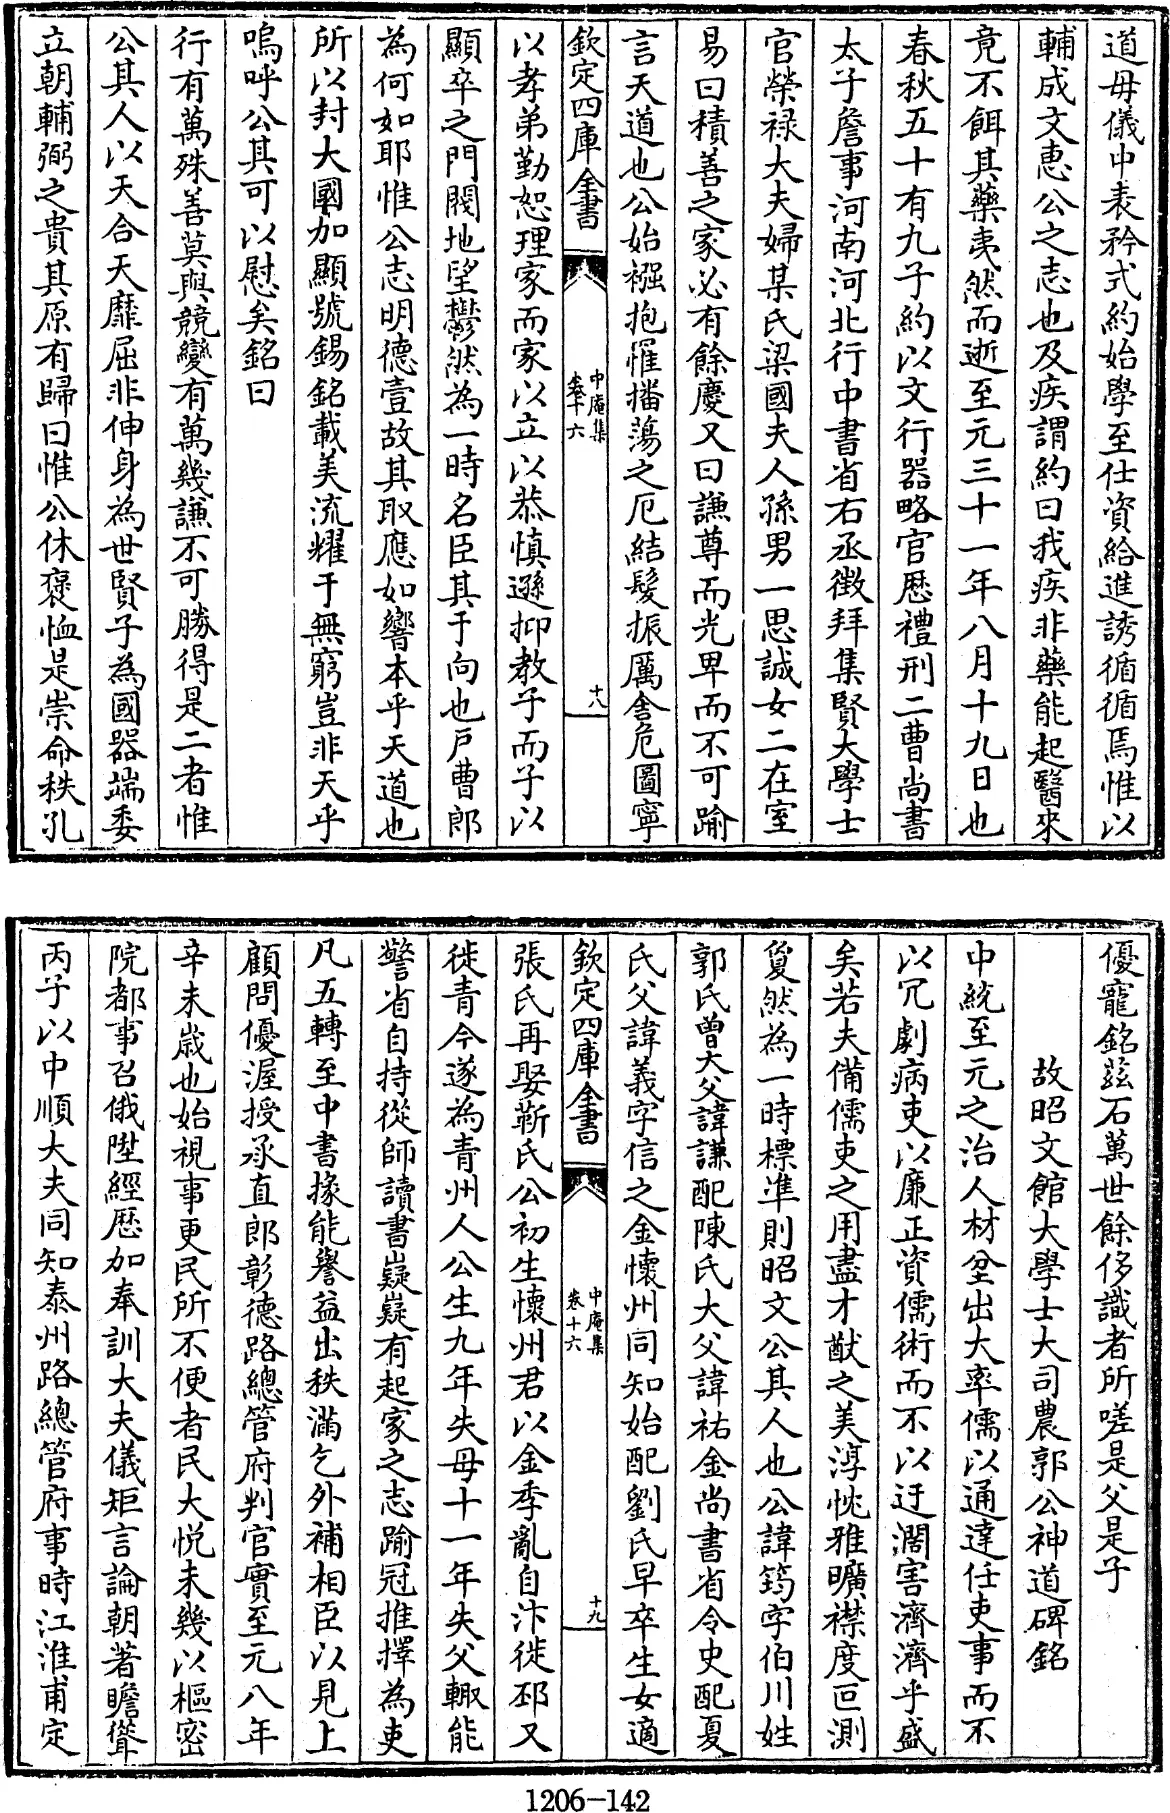 道母儀中表矜式約始學至仕資給進誘循循焉惟以
輔成文惠公之志也及疾謂約曰我疾非藥能起醫來
竟不餌其藥夷然而逝至元三十一年八月十九日也
春秋五十有九子約以文行器略官歴禮刑二曹尚書
太子詹事河南河北行中書省右丞徴拜集賢大學士
官榮禄大夫婦某氏梁國夫人孫男一思誠女二在室
易曰積善之家必有餘慶又曰謙尊而光卑而不可踰
言天道也公始襁抱罹播蕩之厄結髮振厲舍危圖寧
欽定四庫全書
中庵集
卷十六
十八
以孝弟勤恕理家而家以立以恭慎遜抑教子而子以
顯卒之門閥地望鬱然為一時名臣其于向也戸曹郎
為何如耶惟公志明德壹故其取應如響本乎天道也
所以封大國加顯號錫銘載美流耀于無窮豈非天乎
嗚呼公其可以慰矣銘曰
行有萬殊善莫與競變有萬幾謙不可勝得是二者惟
公其人以天合天靡屈非伸身為世賢子為國器端委
立朝輔弼之貴其原有歸曰惟公休褒恤是崇命秩孔
優寵銘兹石萬世餘侈識者所嗟是父是子
故昭文館大學士大司農郭公神道碑銘
中統至元之治人材坌出大率儒以通達任吏事而不
以冗劇病吏以廉正資儒術而不以迂濶害濟濟乎盛
矣若夫備儒吏之用盡才猷之美淳忱雅曠襟度叵測
夐然為一時標準則昭文公其人也公諱筠字伯川姓
郭氏曾大父諱謙配陳氏大父諱祐金尚書省令史配夏
氏父諱義字信之金懷州同知始配劉氏早卒生女適
欽定四庫全書
中庵集
卷十六
十九
張氏再娶靳氏公初生懷州君以金季亂自汴徙邳又
徙青今遂為青州人公生九年失母十一年失父輙能
警省自持從師讀書嶷嶷有起家之志踰冠推擇為吏
凡五轉至中書掾能譽益出秩滿乞外補相臣以見上
顧問優渥授承直郎彰德路總管府判官實至元八年
辛未歳也始視事更民所不便者民大悦未幾以樞密
院都事召俄陞經歴加奉訓大夫儀矩言論朝著瞻聳
丙子以中順大夫同知泰州路總管府事時江淮甫定
1206-142